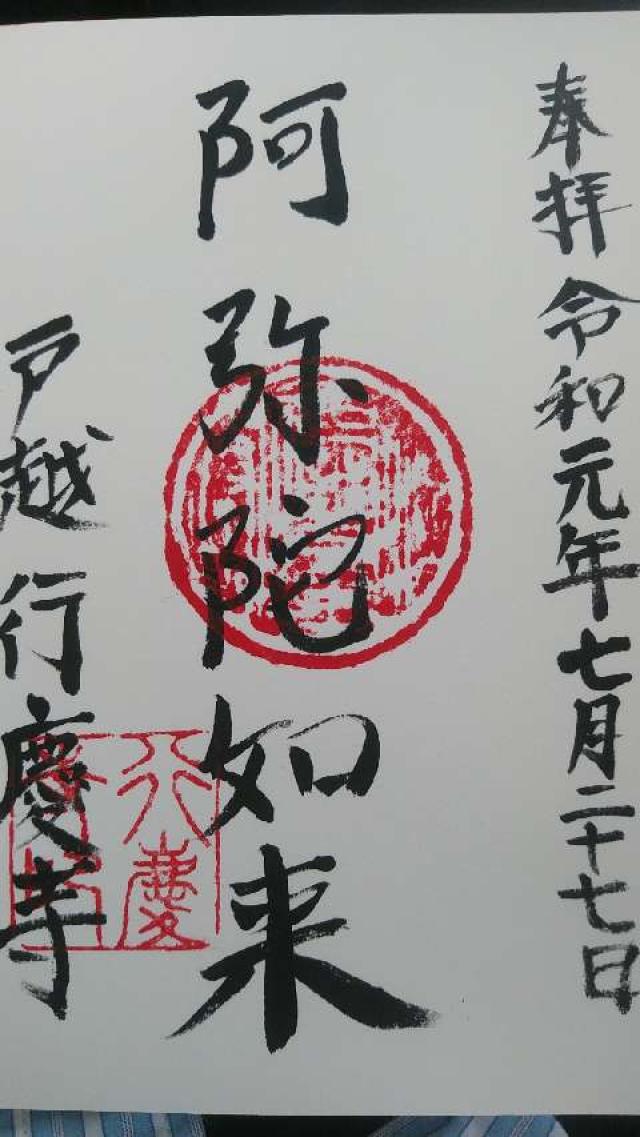 奉拝 令和元年七月二十七日
阿弥陀如来
戸越行慶寺
行慶